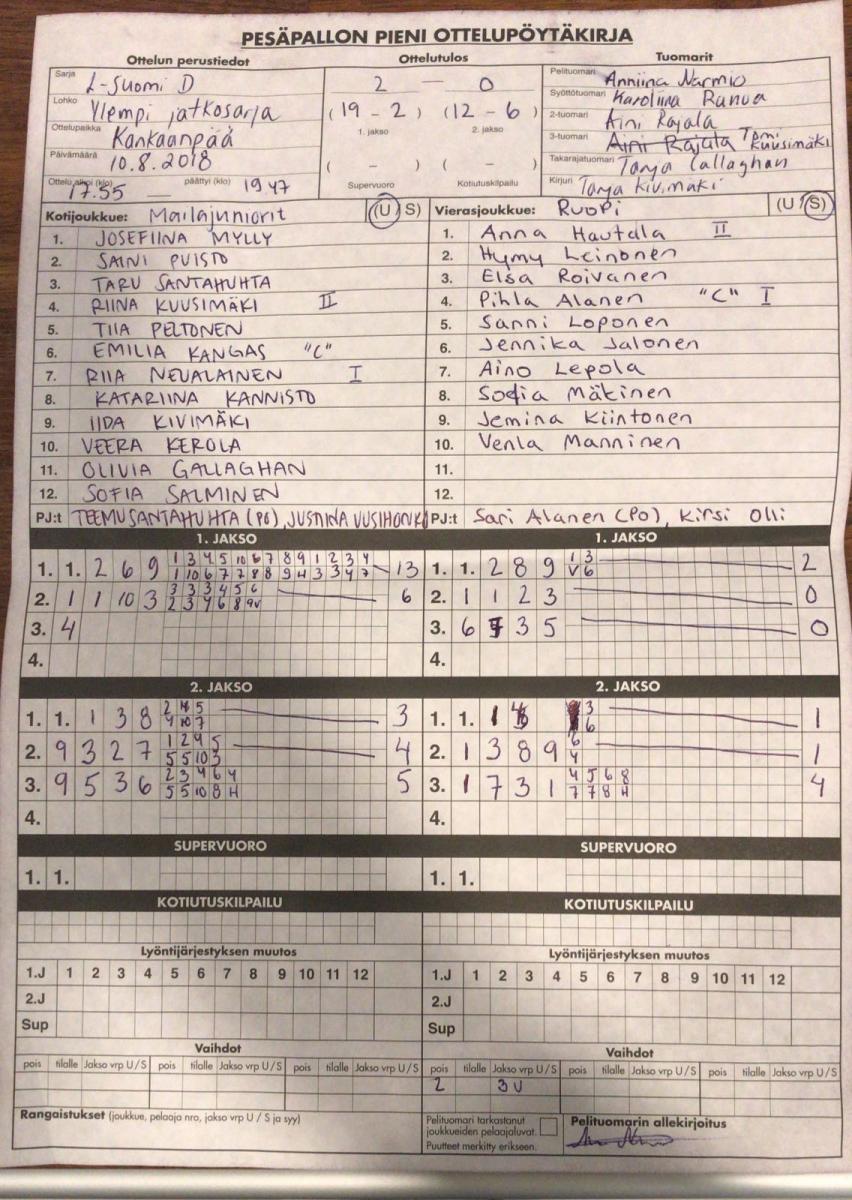 PESÄPALLON PIENI OTTELUPÖYTÄKIRJA
Ottelun perustiedot Ottelutulos Tuomarit
Sarja L-Suomi D
Lohko Ylempi jatkosarja
Ottelupaikka Kankaanpää
Päivämäärä 10.8.2018
Ottelu alkoi (klo) 17.55 päättyi (klo) 1947
2 — 0
(19 - 2) (12 - 6)
1. jakso 2. jakso
( - ) ( - )
Supervuoro Kotiutuskilpailu
Pelituomari Anniina Narmio
Syöttötuomari Karoliina Ranua
2-tuomari Aini Rajala
3-tuomari Aini Rajala Tomi Kuusimäki
Takarajatuomari Tanja Callaghan
Kirjuri Tanja Kivimäki
Kotijoukkue: Mailajuniorit (U/S)
1. JOSEFIINA MYLLY
2. SAINI PUISTO
3. TARU SANTAHUHTA
4. RIINA KUUSIMÄKI II
5. TIIA PELTONEN
6. EMILIA KANGAS "C"
7. RIIA NEVALAINEN I
8. KATARIINA KANNISTO
9. IIDA KIVIMÄKI
10. VEERA KEROLA
11. OLIVIA GALLAGHAN
12. SOFIA SALMINEN
PJ:t TEEMU SANTAHUHTA (PG), JUSTIINA UUSIHONKO
Vierasjoukkue: RUOPI (U/S)
1. Anna Hautala II
2. Hymy Leinonen
3. Elsa Roivanen
4. Pihla Alanen "C" I
5. Sanni Loponen
6. Jennika Jalonen
7. Aino Lepola
8. Sofia Mäkinen
9. Jemina Kiintonen
10. Venla Manninen
11.
12.
PJ:t Sari Alanen (PO), Kirsi Olli
1. JAKSO
1. 1. 2 6 9 1 3 4 5 10 6 7 8 9 1 2 3 4 13
1 10 6 7 7 8 8 9 H 3 3 4 7
2. 1 1 10 3 3 3 3 4 5 6 6
2 3 4 6 8 9V
3. 4
4.
1. JAKSO
1. 1. 2 8 9 1 3 2
V 6
2. 1 1 2 3 0
3. 6 3 5 0
4.
2. JAKSO
1. 1. 1 3 8 2 4 5 3
4 10 7
2. 9 3 2 7 1 2 9 5 4
5 5 10 3
3. 9 5 3 6 2 3 4 6 4 5
5 5 10 8 H
4.
2. JAKSO
1. 1. 1 3 1
6
2. 1 3 8 9 6 1
4
3. 1 7 3 1 4 5 6 8 4
7 7 8 H
4.
SUPERVUORO
1. 1.
SUPERVUORO
1. 1.
KOTIUTUSKILPAILU
KOTIUTUSKILPAILU
Lyöntijärjestyksen muutos
1.J 1 2 3 4 5 6 7 8 9 10 11 12
2.J
Sup
Lyöntijärjestyksen muutos
1.J 1 2 3 4 5 6 7 8 9 10 11 12
2.J
Sup
Vaihdot
pois tilalle Jakso vrp U/S pois tilalle Jakso vrp U/S pois tilalle Jakso vrp U/S
Vaihdot
pois tilalle Jakso vrp U/S pois tilalle Jakso vrp U/S pois tilalle Jakso vrp U/S
2 3U
Rangaistukset (joukkue, pelaaja nro, jakso vrp U / S ja syy)
Pelituomari tarkastanut
joukkueiden pelaajaluvat.
Puutteet merkitty erikseen.
Pelituomarin allekirjoitus